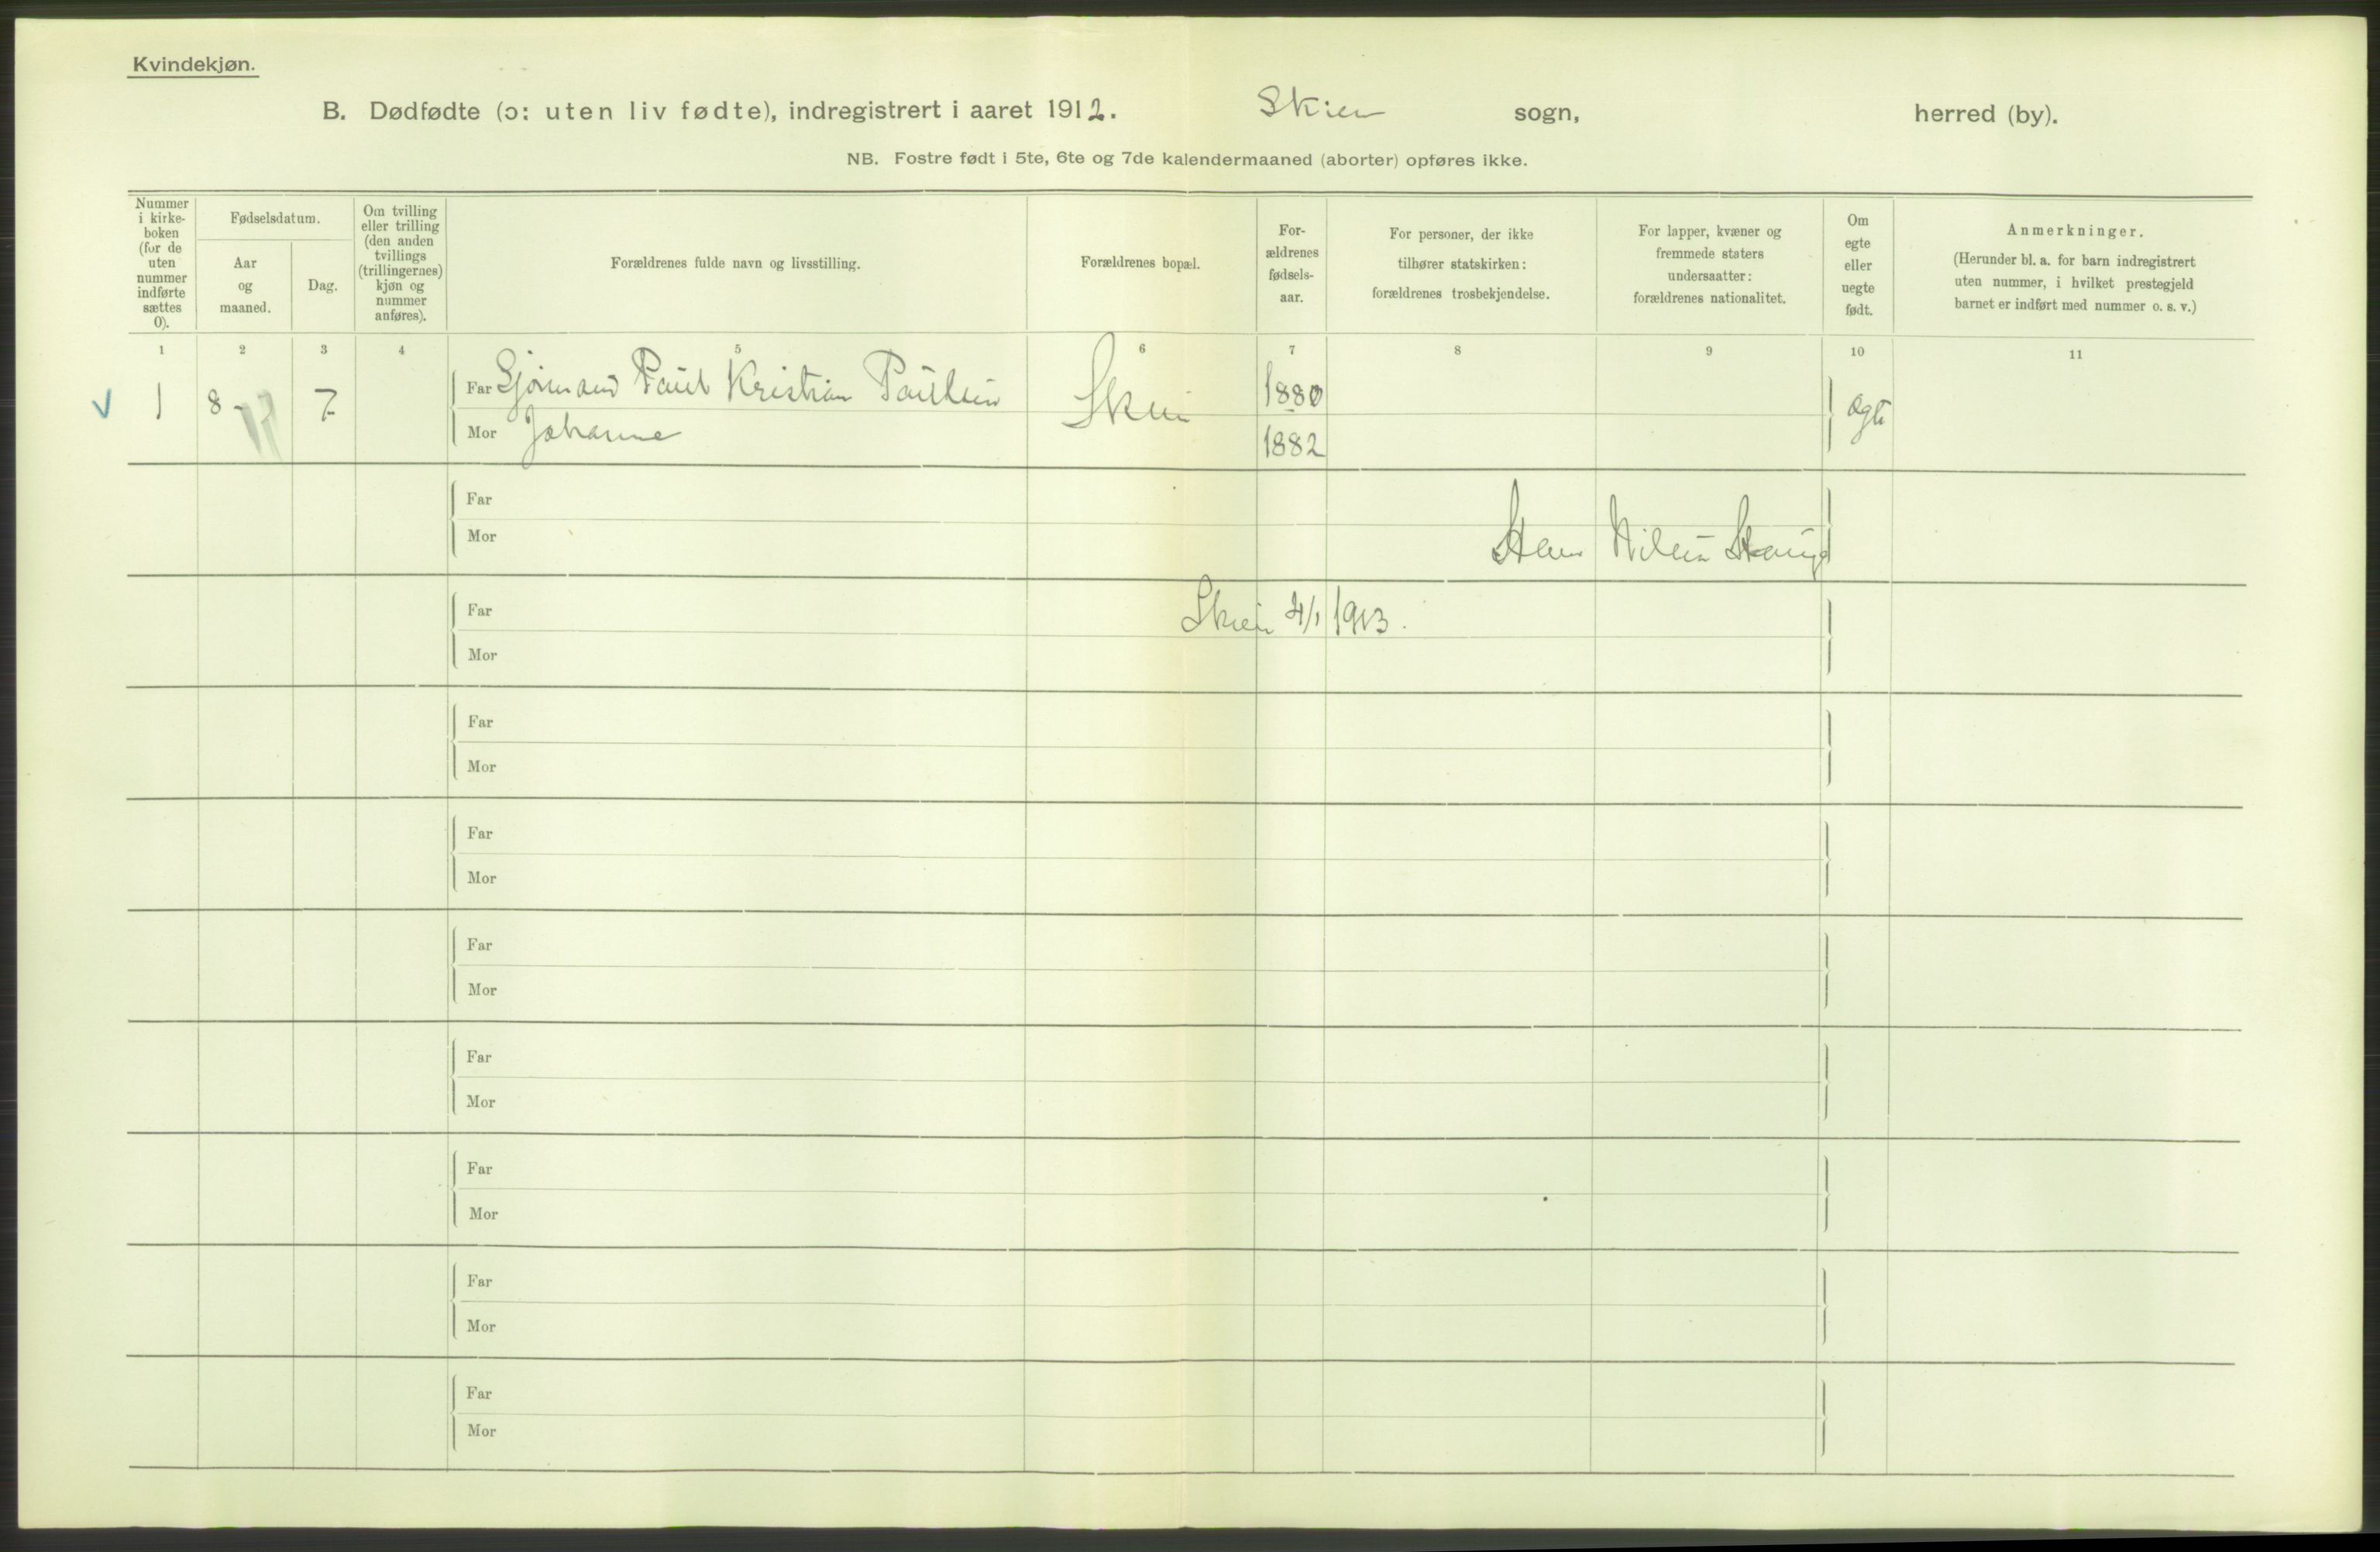 Kvindekjøn.
B. Dødfødte (ɔ: uten liv fødte), indregistrert i aaret 1912. Skien sogn, herred (by).
NB. Fostre født i 5te, 6te og 7de kalendermaaned (aborter) opføres ikke.
Nummer
i kirke-
boken
(for de
uten
nummer
indførte
sættes
0).
Fødselsdatum.
Aar
og
maaned.
Dag.
Om tvilling
eller trilling
(den anden
tvillings
(trillingernes)
kjøn og
nummer
anføres).
Forældrenes fulde navn og livsstilling.
Forældrenes bopæl.
For-
ældrenes
fødsels-
aar.
For personer, der ikke
tilhører statskirken:
forældrenes trosbekjendelse.
For lapper, kvæner og
fremmede staters
undersaatter:
forældrenes nationalitet.
Om
egte
eller
uegte
født.
Anmerkninger.
(Herunder bl. a. for barn indregistrert
uten nummer, i hvilket prestegjeld
barnet er indført med nummer o. s. v.)
1 2 3 4 5 6 7 8 9 10 11
V 1 8- 7. Far Sjømand Paul Kristian Paulsen Skien 1880 ægte
Mor Johanne 1882
Far
Mor
Far Skien 4/1 1913.
Mor
Far
Mor
Far
Mor
Far
Mor
Far
Mor
Far
Mor
Far
Mor
Far
Mor